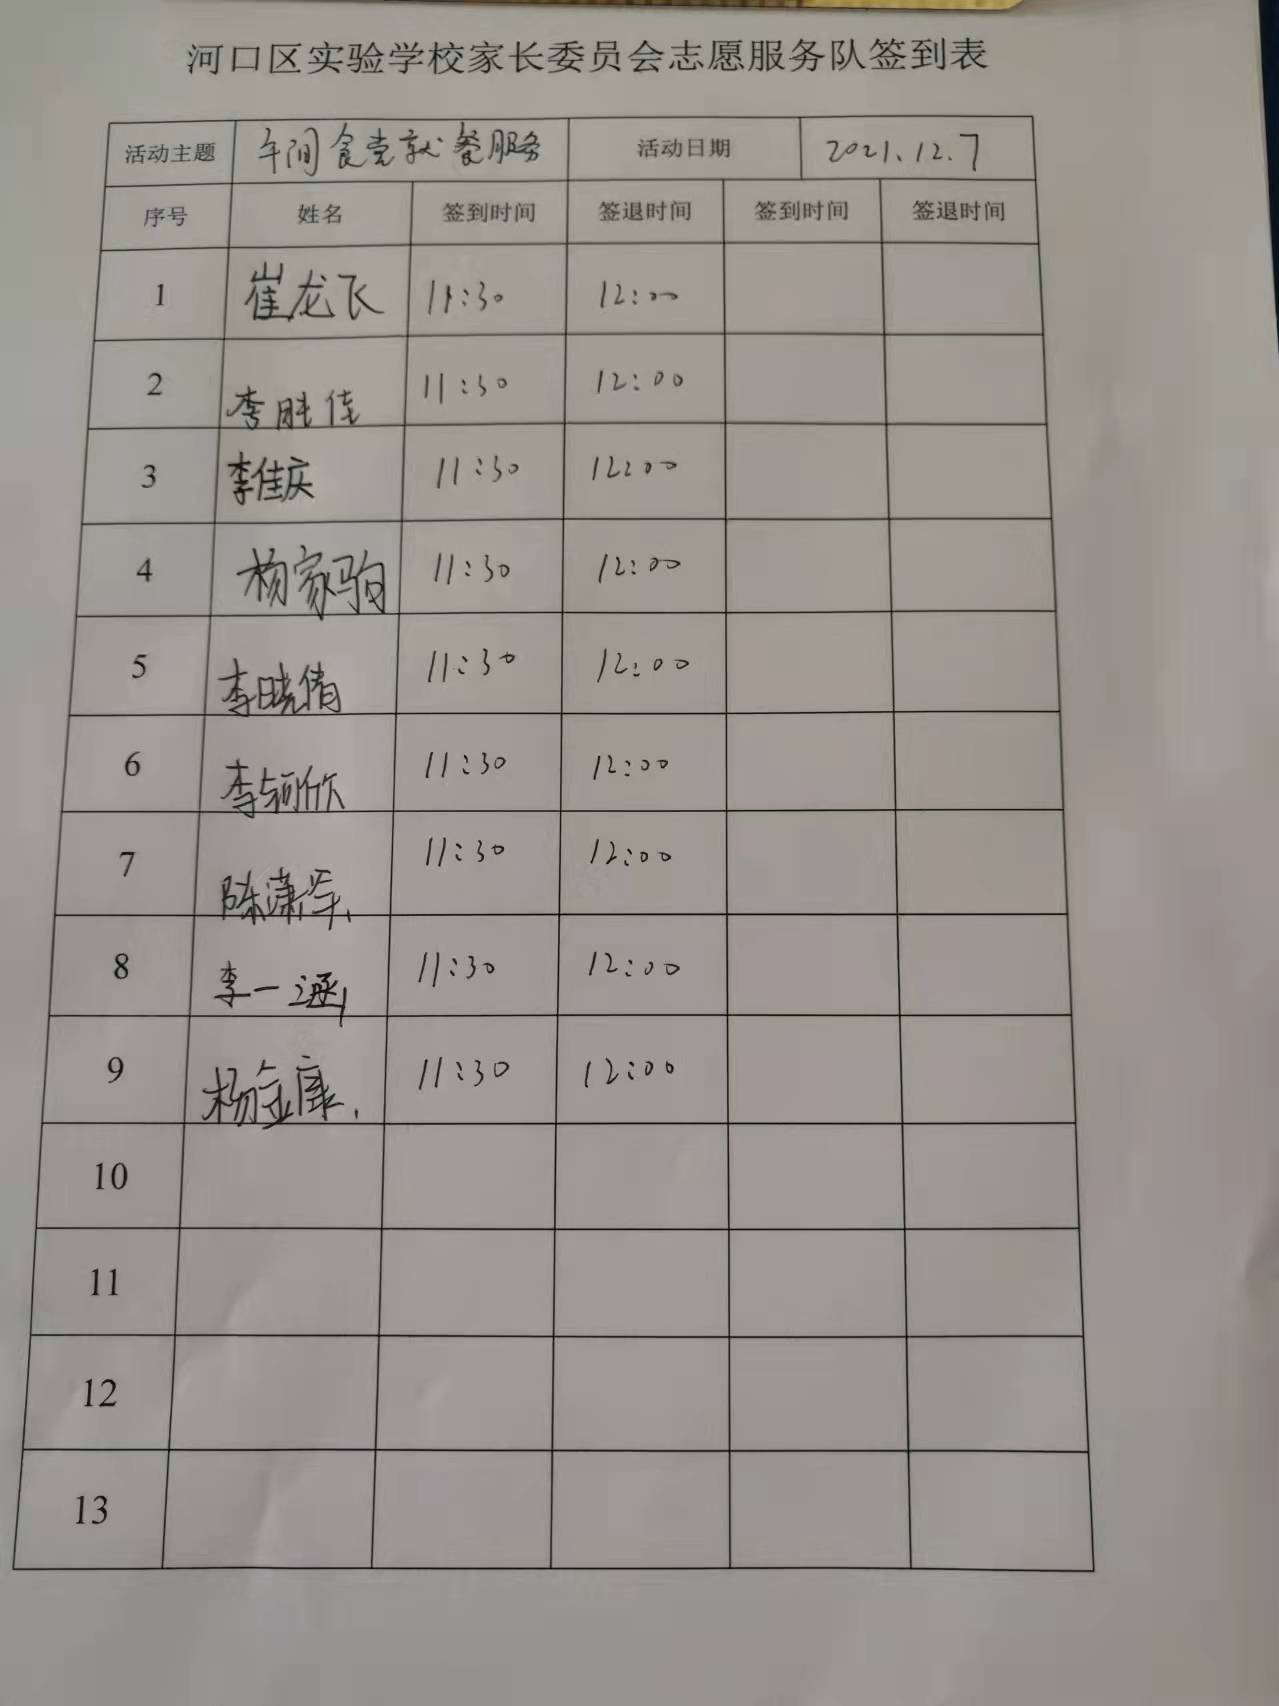 河口区实验学校家长委员会志愿服务队签到表
活动主题 午间食堂就餐服务 活动日期 2021.12.7
序号 姓名 签到时间 签退时间 签到时间 签退时间
1 崔龙飞 11:30 12:00
2 李胜佳 11:30 12:00
3 李佳庆 11:30 12:00
4 杨家驹 11:30 12:00
5 李晓倩 11:30 12:00
6 李轲欣 11:30 12:00
7 陈潇军 11:30 12:00
8 李一涵 11:30 12:00
9 杨金康 11:30 12:00
10
11
12
13